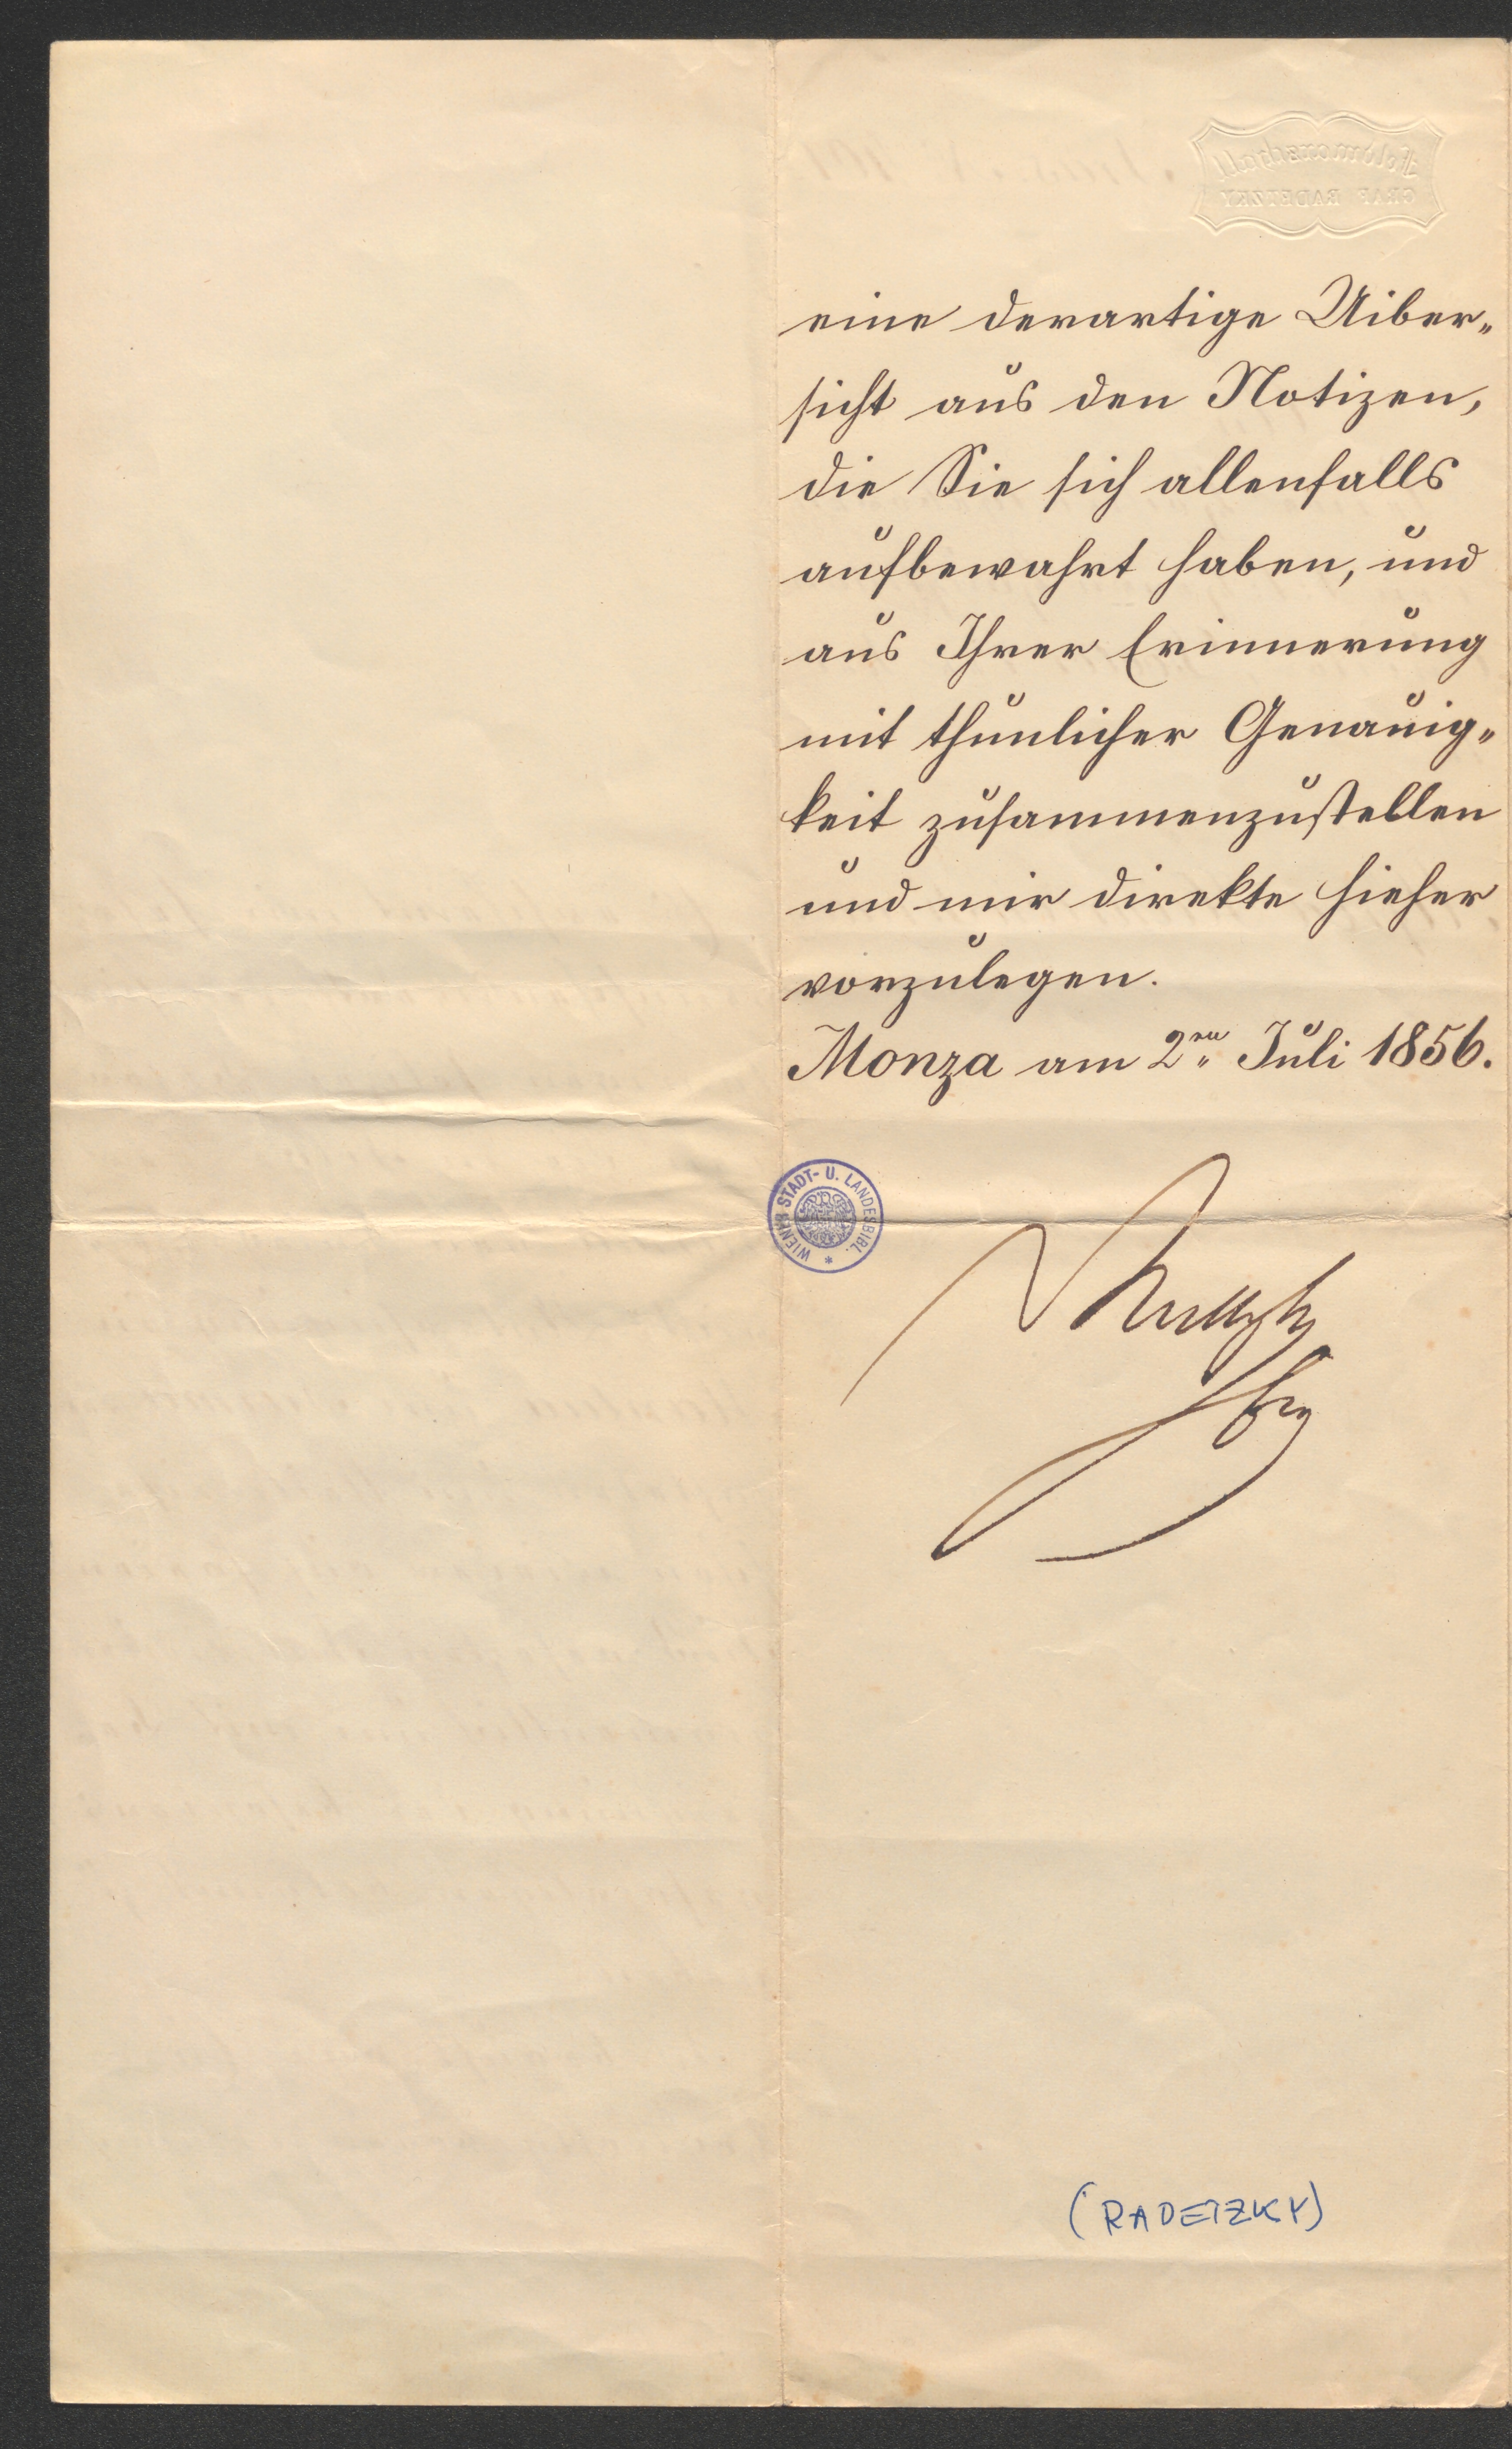 Feldmarschall
GRAF RADETZKY
eine derartige Uiber„
sicht aus den Notizen,
die Sie sich allenfalls
aufbewahrt haben, und
aus Ihrer Erinnerung
mit thunlicher Genauig„
keit zusammenzustellen
und mir direkte hieher
vorzulegen.
Monza am 2ten Juli 1856.
WIENER STADT- U. LANDESBIBL. *
Radetzky
(RADETZKY)